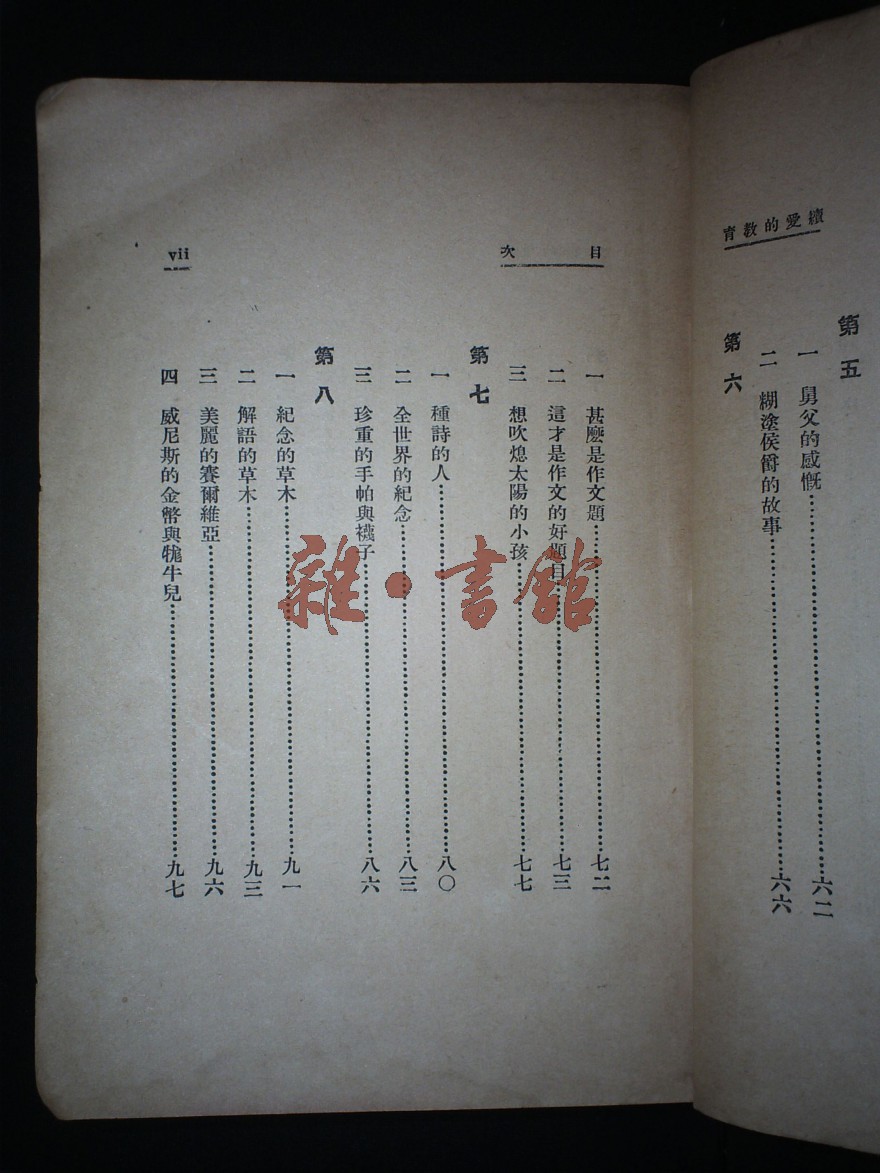 續愛的教育
第五
一 舅父的感慨……六二
二 糊塗侯爵的故事……六六
第六
目次
vii
一 甚麼是作文題……七二
二 這才是作文的好題目……七三
三 想吹熄太陽的小孩……七七
第七
一 種詩的人……八〇
二 全世界的紀念……八三
三 珍重的手帕與襪子……八六
第八
一 紀念的草木……九一
二 解語的草木……九三
三 美麗的賽爾維亞……九六
四 威尼斯的金幣與牻牛兒……九七
雜·書館